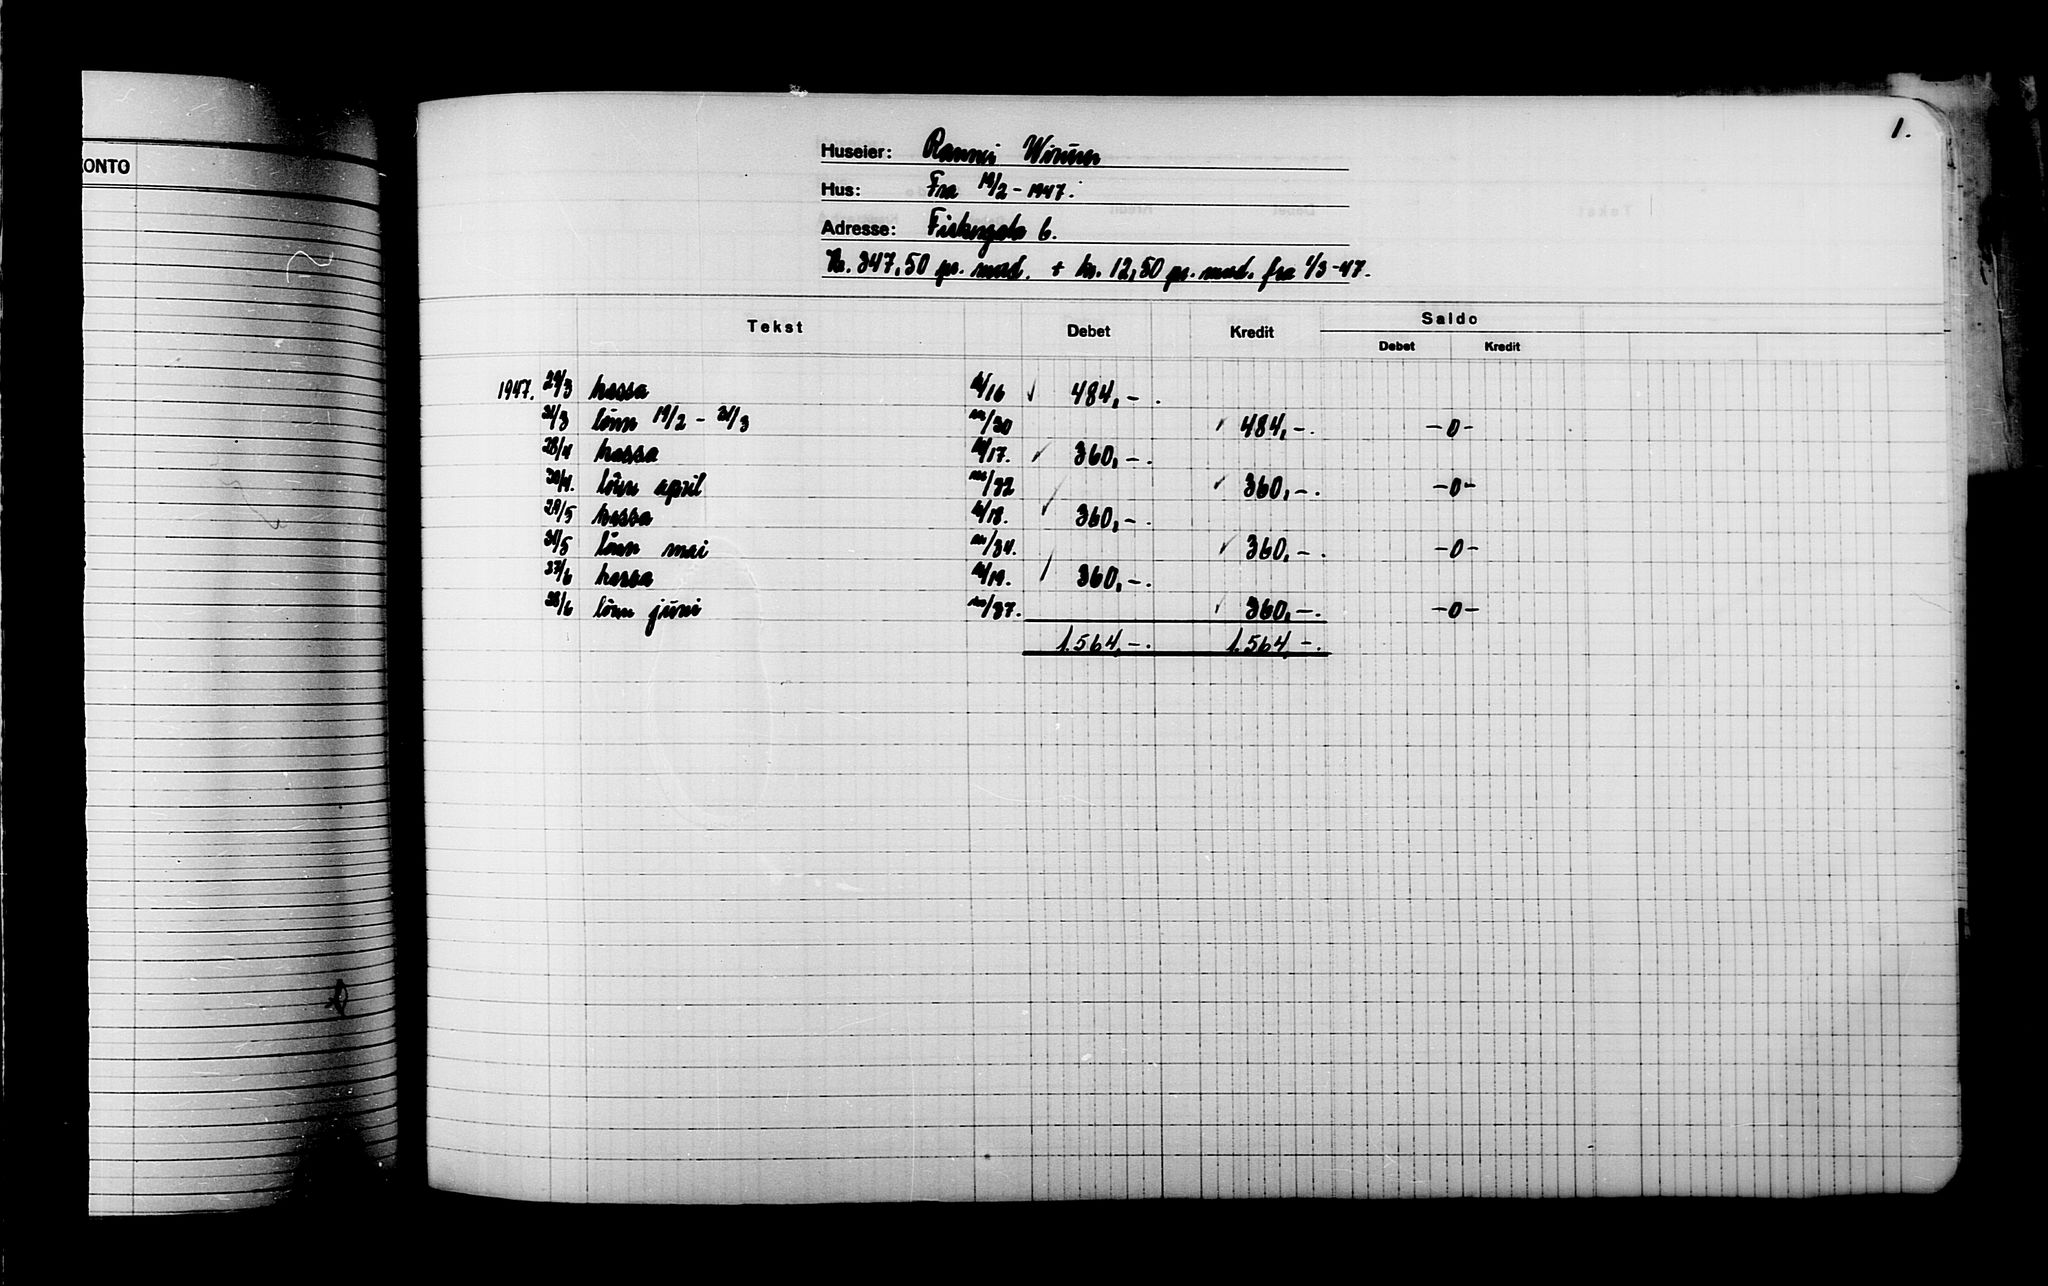 KONTO
1.
Huseier: Rannei Wirum
Hus: Fra 19/2 - 1947.
Adresse: Fiskergata 6.
Kr. 347,50 pr. mnd. + kr. 12,50 pr. mnd. fra 1/3-47.
Tekst Debet Kredit Saldo
Debet Kredit
1947. 29/3 kassa /16 484,-.
31/3 lönn 19/2 - 31/3 /30 484,-. -0-
28/4 kassa /17. 360,-.
30/4. lönn april /32 360,-. -0-
29/5 kassa /18. 360,-.
31/5 lönn mai /34. 360,-. -0-
27/6 kassa /19. 360,-.
28/6 lönn juni /37. 360,-. -0-
1.564,-. 1.564,-.